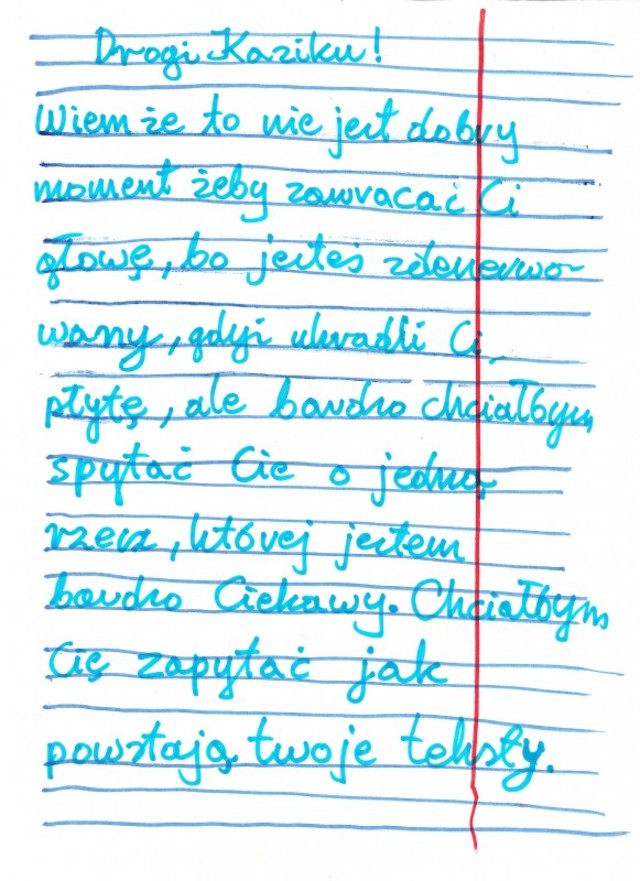 Drogi Kaziku!
Wiem że to nie jest dobry
moment żeby zawracać Ci
głowę, bo jesteś zdenerwo-
wany, gdyż ukradli Ci
płytę, ale bardzo chciałbym
spytać Cie o jedną
rzecz, której jestem
bardzo Ciekawy. Chciałbym
Cię zapytać jak
powstają twoje teksty.